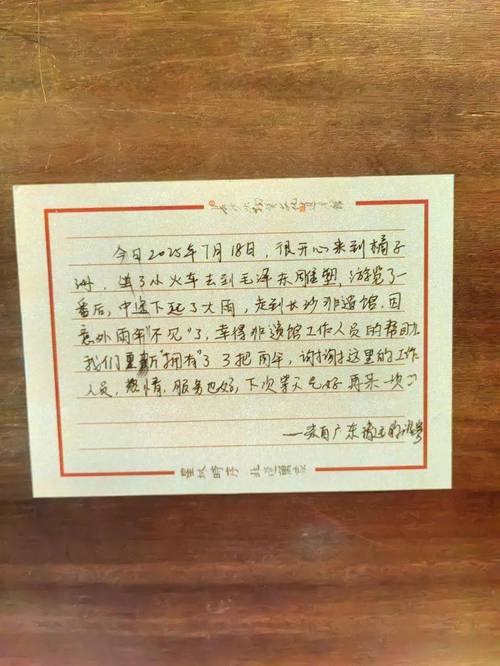 长沙非物质文化遗产馆
今日2025年7月18日，很开心来到橘子
洲，坐了小火车去到毛泽东雕塑，游览了一
番后，中途下起了大雨，走到长沙非遗馆，因
意外雨伞"不见"了，幸得非遗馆工作人员的帮助，
我们重新"拥有"了3把雨伞，谢谢这里的工作
人员，热情，服务也好，下次等天气好再来一次
——来自广东清远的游客